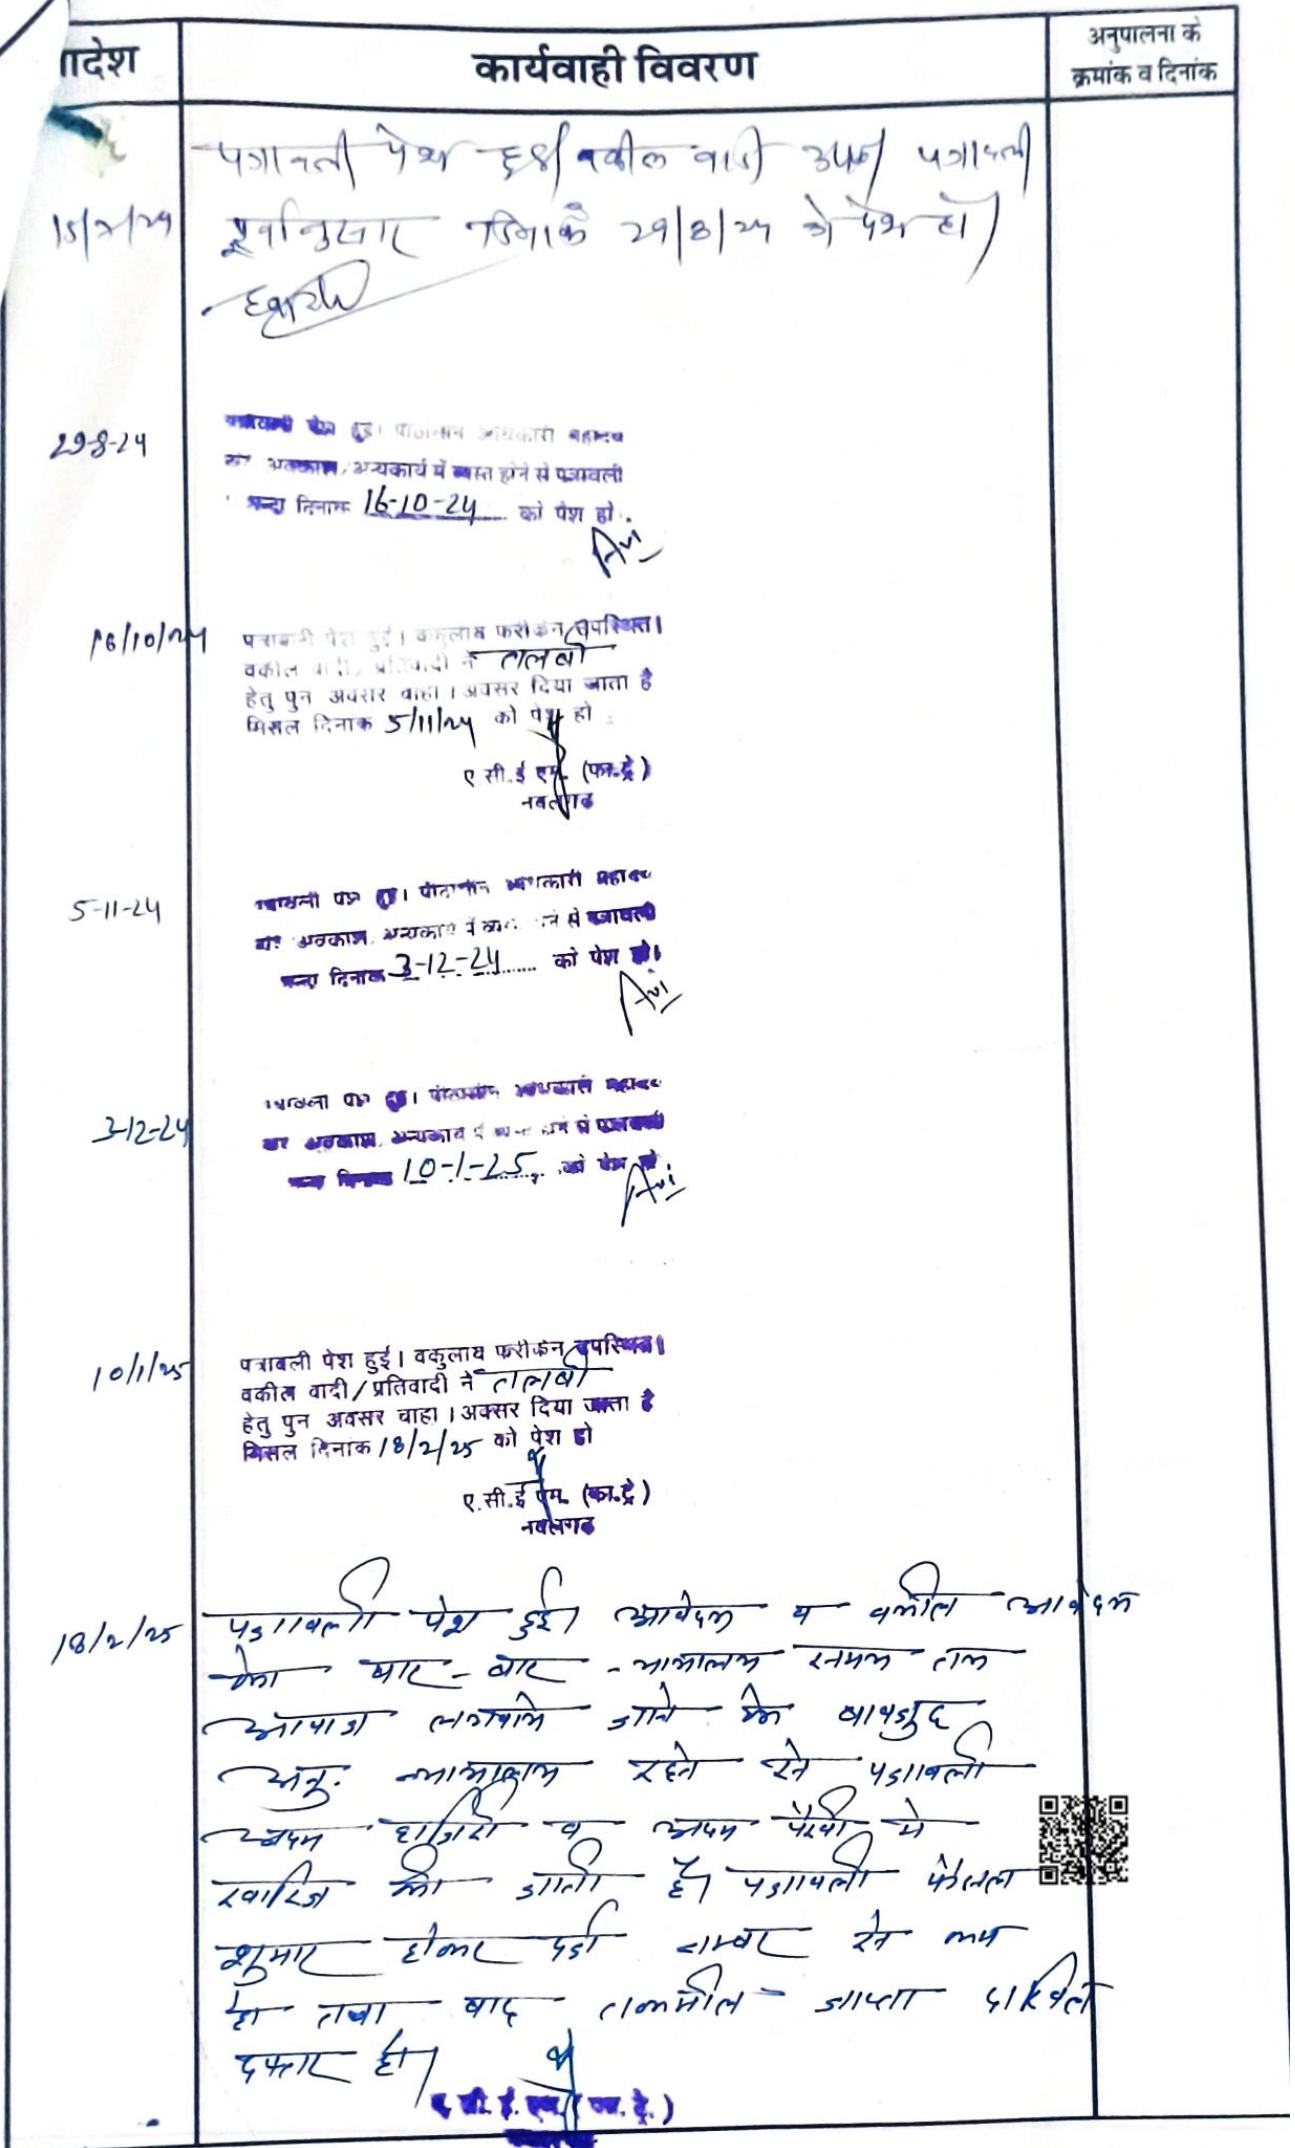 ादेश
कार्यवाही विवरण
अनुपालना के
क्रमांक व दिनांक
पत्रावली पेश हुई। वकील वादी उप० पत्रावली
15/7/24
पूर्वानुसार दिनांक 29/8/24 को पेश हो।
29-8-24
पत्रावली पेश हुई। पीठासीन अधिकारी महोदय
अवकाश, अन्यकार्य में व्यस्त होने से पत्रावली
दिनांक 16-10-24 को पेश हो.
16/10/24
पत्रावली पेश हुई। वकुलाय फरीकेन उपस्थित।
वकील वादी/प्रतिवादी ने तलबी
हेतु पुन अवसर चाहा। अवसर दिया जाता है
मिसल दिनांक 5/11/24 को पेश हो
ए सी.ई एम. (फा.ट्रे)
नवलगढ
5-11-24
पत्रावली पेश हुई। पीठासीन अधिकारी महोदय
अवकाश, अन्यकार्य में होने से पत्रावली
दिनांक 3-12-24 को पेश हो।
3-12-24
पत्रावली पेश हुई। पीठासीन अधिकारी महोदय
अवकाश, अन्यकार्य में होने से पत्रावली
दिनांक 10-1-25 को पेश हो
10/1/25
पत्रावली पेश हुई। वकुलाय फरीकेन उपस्थित।
वकील वादी/प्रतिवादी ने तलबी
हेतु पुन अवसर चाहा। अवसर दिया जाता है
मिसल दिनांक 18/2/25 को पेश हो
ए.सी.ई एम. (फा.ट्रे)
नवलगढ
18/2/25
पत्रावली पेश हुई। आवेदक व वकील आवेदक
को बार-बार न्यायालय समय तक
आवाज लगवाये जाने के बावजुद
अनु. न्यायालय रहने से पत्रावली
अदम हाजिरी व अदम पैरवी मे
खारिज की जाती है। पत्रावली फैसल
शुमार होकर दर्ज नम्बर से कम
हो तथा बाद तकमील जाप्ता दाखिल
दफ्तर हो।
ए सी.ई.एम. (फा.ट्रे.)